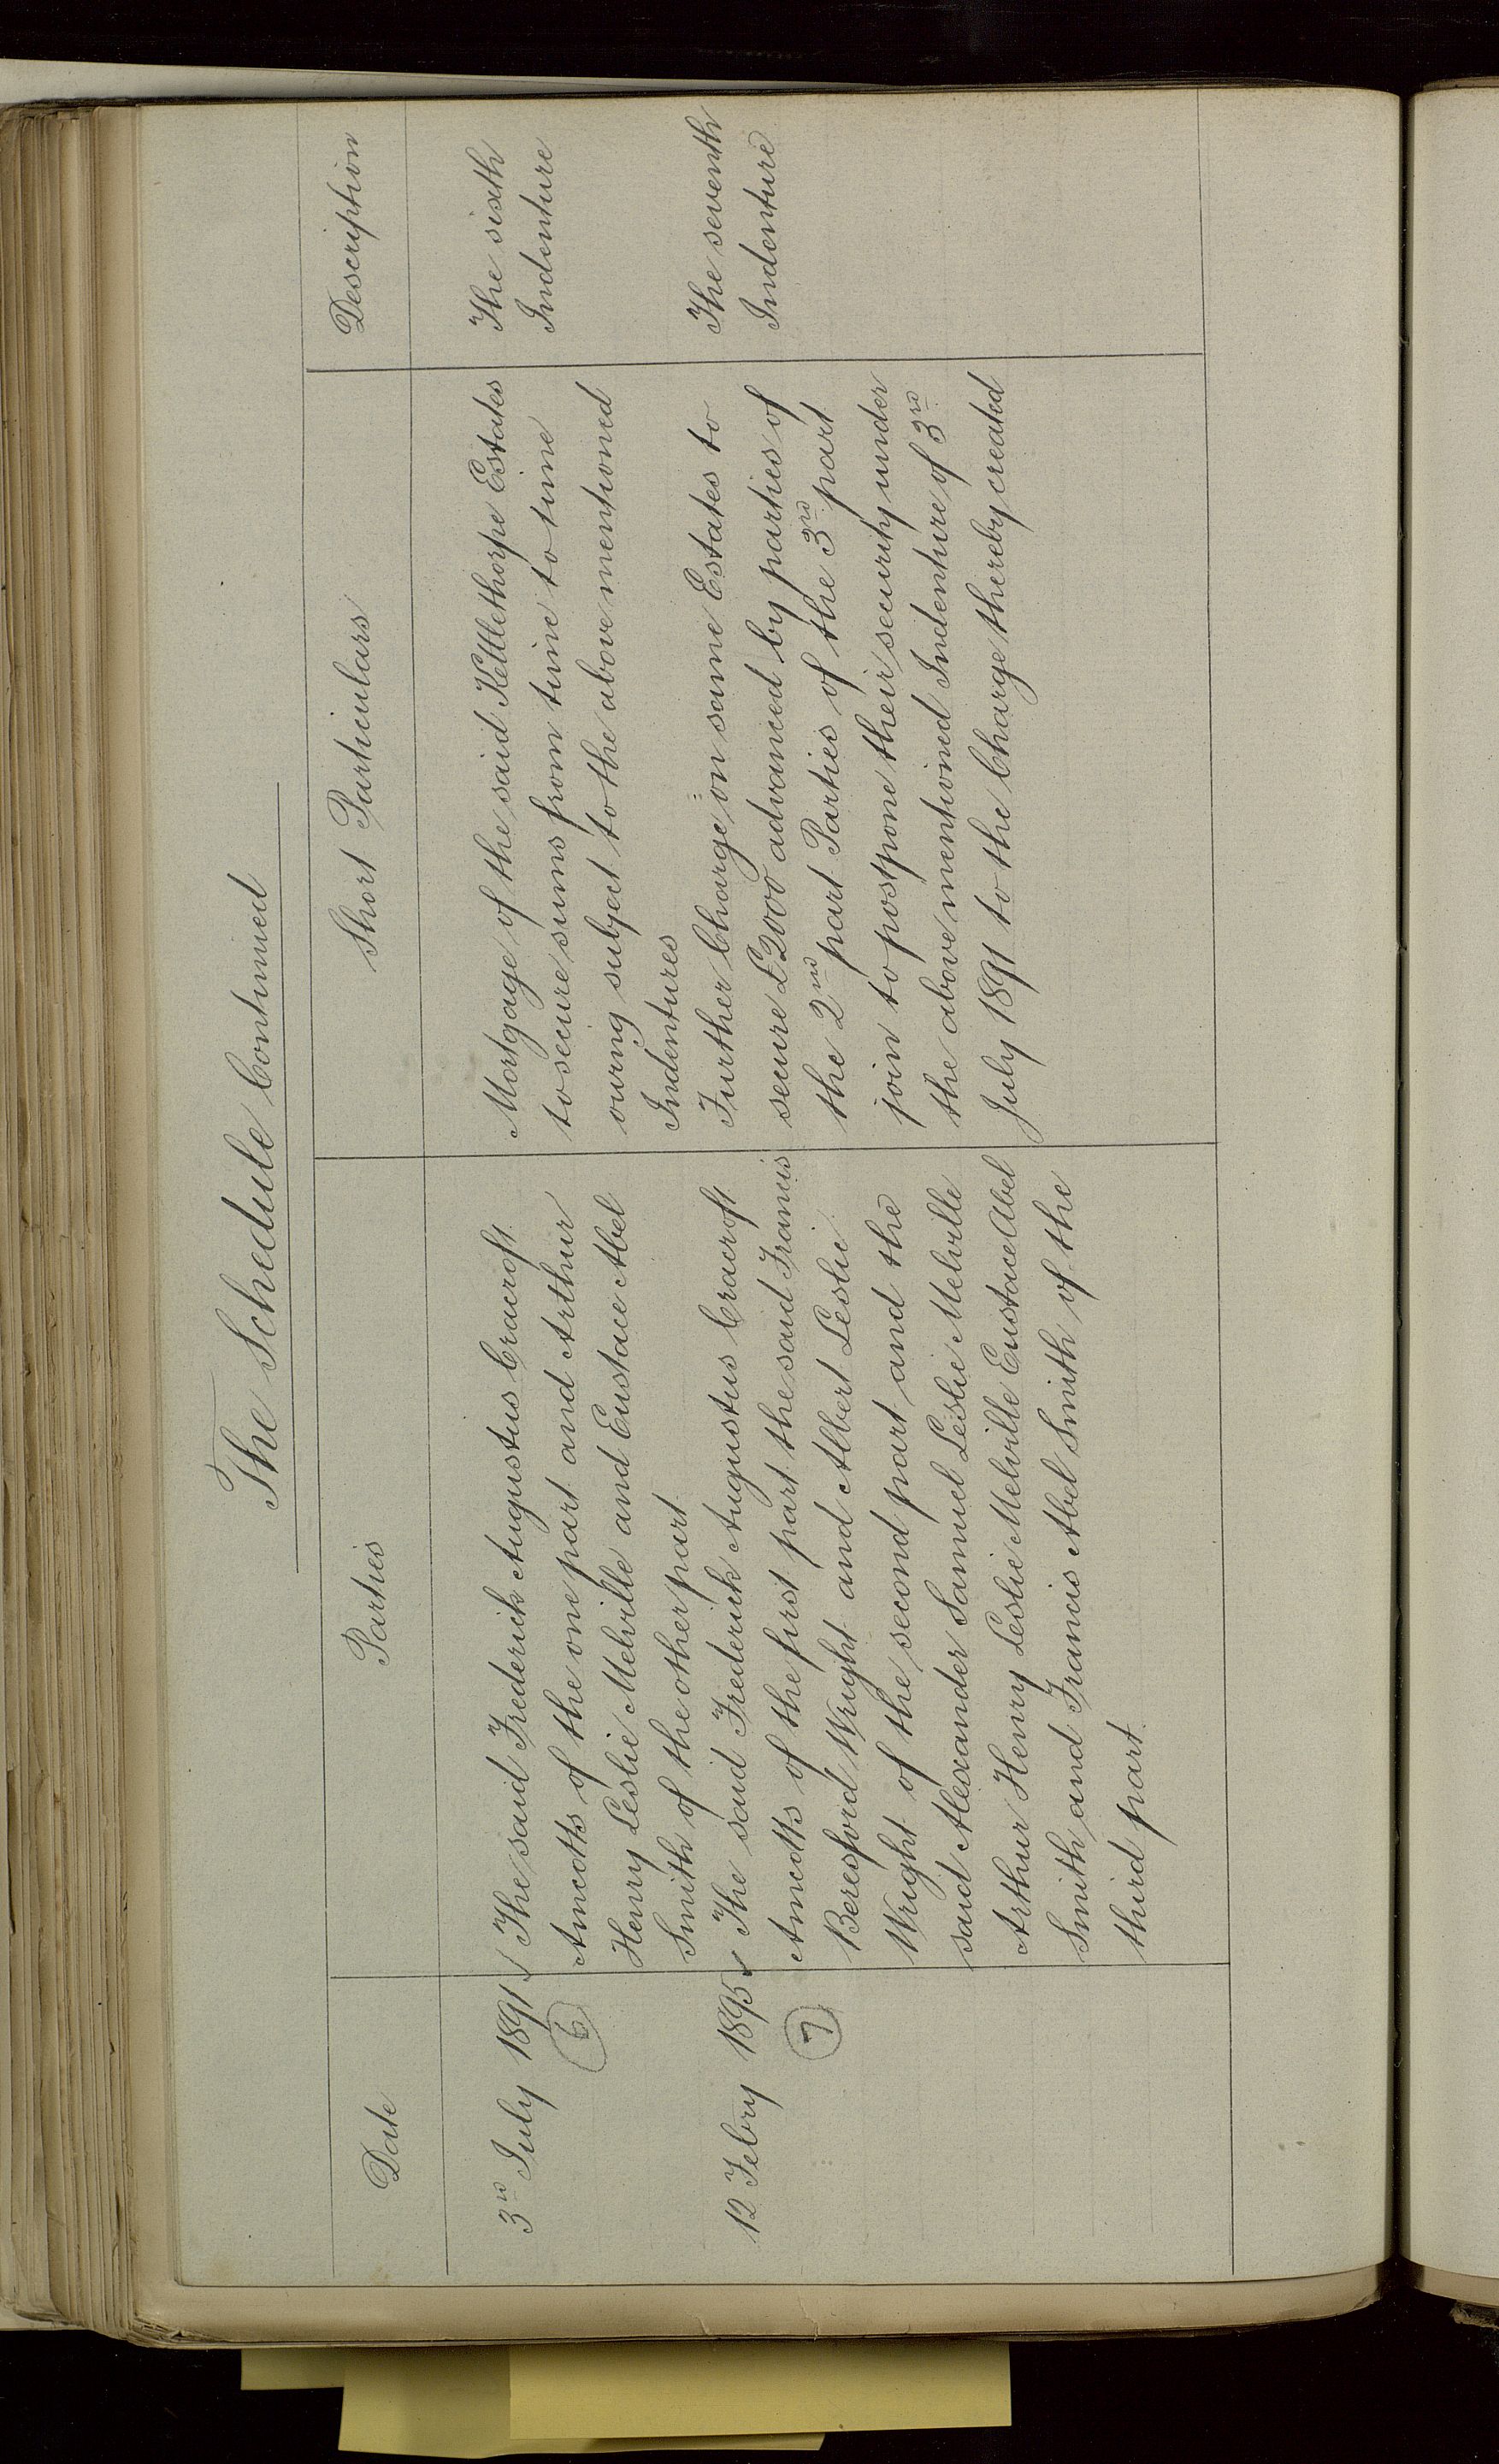 The Schedule Continued
Date
Parties
Short Particulars
Description
3rd July 1891
6
The said Frederick Augustus Cracroft
Amcotts of the one part and Arthur
Henry Leslie Melville and Eustace Abel
Smith of the other part
Mortgage of the said Kettlethorpe Estates
to secure sums from time to time
owing subject to the above mentioned
Indentures
The sixth
Indenture
12 Febry 1895
7
The said Frederick Augustus Cracroft
Amcotts of the first part the said Francis
Beresford Wright and Albert Leslie
Wright of the second part and the
said Alexander Samuel Leslie Melville
Arthur Henry Leslie Melville Eustace Abel
Smith and Francis Abel Smith of the
third part
Further Charge on same Estates to
secure £2000 advanced by parties of
the 2nd part Parties of the 3rd part
join to postpone their security under
the above mentioned Indenture of 3rd
July 1891 to the Charge thereby created
The seventh
Indenture